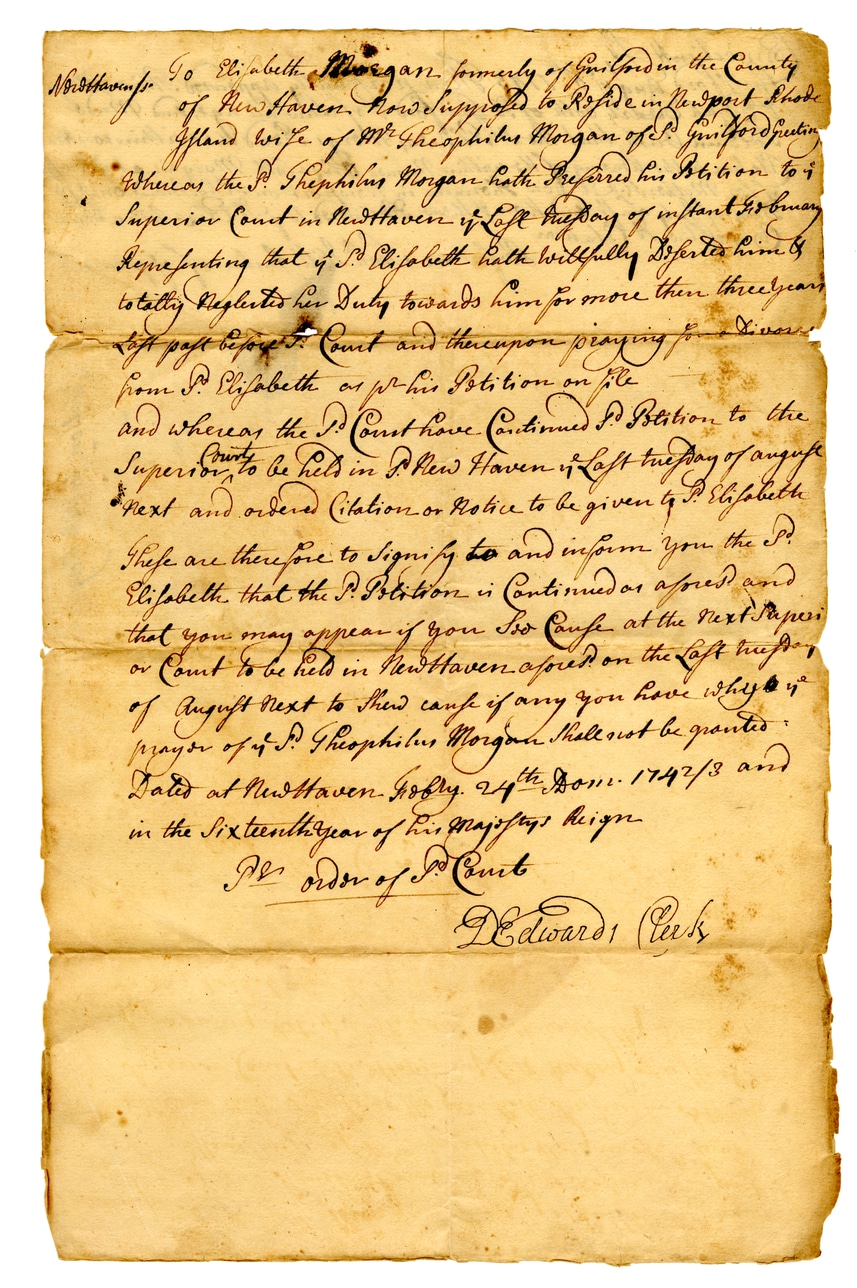 NewHaven ss. To Elisabeth Morgan formerly of Guilford in the County
of New Haven Now Supposed to Reside in Newport Rhode
Island wife of Mr Theophilus Morgan of sd. Guilford Greeting
Whereas the sd. Thephilus Morgan hath Preferred his Petition to ye
Superior Court in NewHaven ye Last tuesday of instant February
Representing that ye sd Elisabeth hath willfully Deserted him &
totally Neglected her Duty towards him for more then three years
Last past before sd. Court and thereupon praying for a Divorse
from sd Elisabeth as pr his Petition on file
and whereas the sd Court have Continued sd Petition to the
Superior Court to be held in sd New Haven ye Last tuesday of august
Next and ordered Citation or Notice to be given to sd. Elisabeth
These are therefore to signify to and inform you the sd.
Elisabeth that the sd. Petition is Continued as aforesd and
that you may appear if you See Cause at the Next Superi
or Court to be held in NewHaven aforesd. on the Last tuesday
of August Next to Shew cause if any you have why ye
prayer of ye sd. Theophilus Morgan Shall not be granted:
Dated at NewHaven Febry. 24th Dom. 1742/3 and
in the Sixteenth year of his Majestys Reign
Pr order of sd Court
DEdwards Clerk